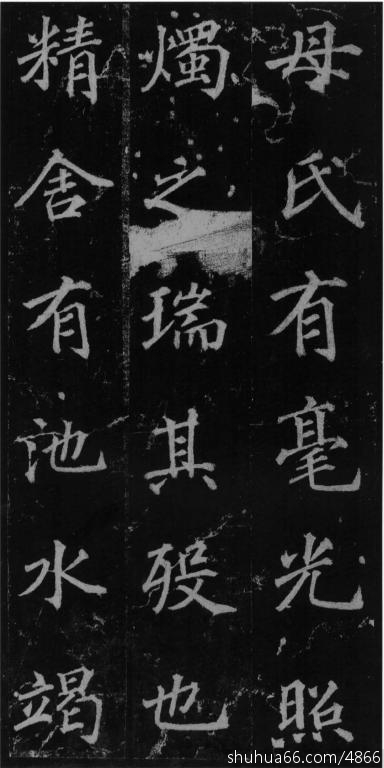 母氏有毫光照
燭之瑞其殁也
精舍有池水竭
shuhua66.com/4866